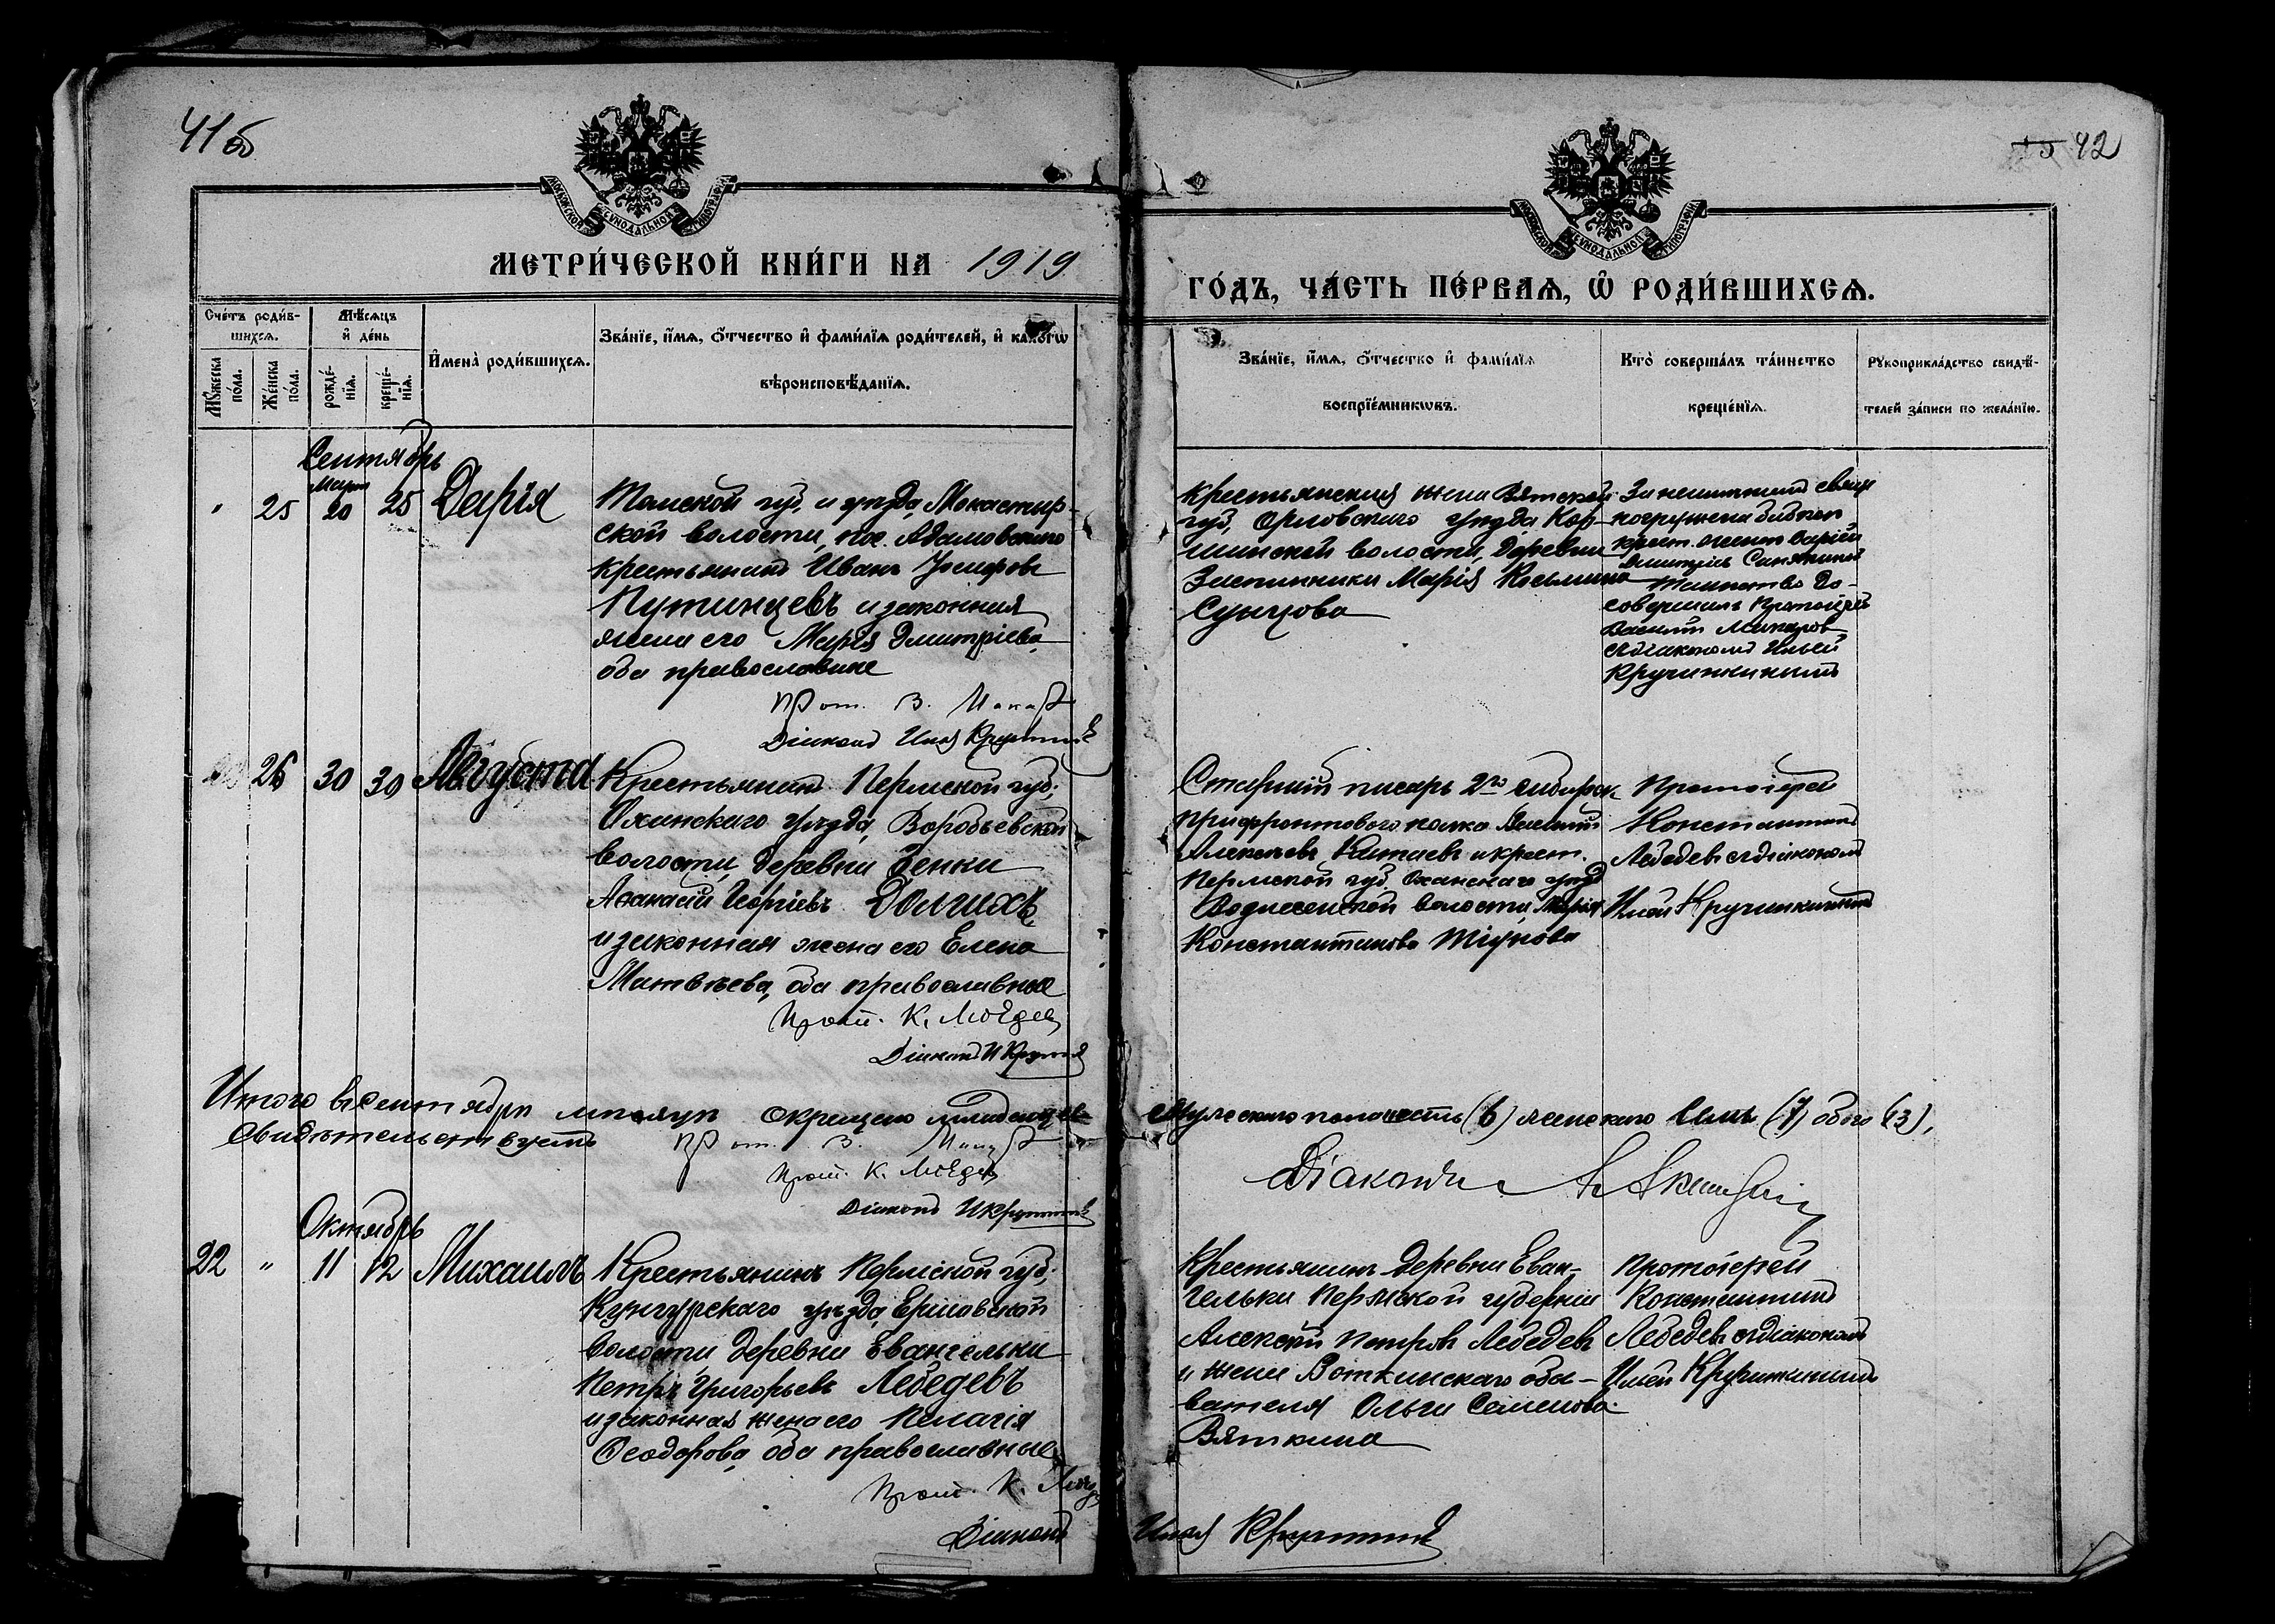 41об
42
МОСКОВСКОЙ СѴНОДАЛЬНОЙ ТИПОГРАФІИ
МОСКОВСКОЙ СѴНОДАЛЬНОЙ ТИПОГРАФІИ
МЕТРИ́ЧЕСКОЙ КНИ́ГИ НА 1919
ГО́ДЪ, ЧА́СТЬ ПЕ́РВАѦ, Ѡ҆ РОДИ́ВШИХСѦ.
Сче́тъ роди́в-
шихсѧ.
Мꙋ́жеска по́ла.
Же́нска по́ла.
Мѣ́сѧцъ
и҆ де́нь
рожде́-
нїѧ.
креще́-
нїѧ.
И҆мена̀ роди́вшихсѧ.
Зва́нїе, и҆́мѧ, ѻ҆́тчество и҆ фами́лїѧ роди́телей, и҆ како́гѡ
вѣроисповѣ́данїѧ.
Зва́нїе, и҆́мѧ, ѻ҆́тчество и҆ фами́лїѧ
воспрїе́мникѡвъ.
Кто̀ соверша́лъ та́инство
креще́нїѧ.
Рꙋкоприкла́дство свидѣ́-
телей за́писи по жела́нїю.
Сентябрь
Март
" 25 20 25 Дарія
Томской губ, и уѣзда, Монастыр-
ской волости, пос. Адамовскаго
крестьянинъ Иванъ Іосифовъ
Путинцевъ и законная
жена его Марія Дмитріева,
оба православные
Прот. В. Макар
Діаконъ Илія
крестьянская жена Вятской
губ, Орловскаго уѣзда Кор-
шинской волости, деревни
Марія Косьмина
Сунцова
За неимѣніемъ свящ
погружена
крест.
Таинство до-
совершилъ Протоіерей
Василій Макаров
съ діакономъ Иліей
Кручинкинымъ
26 30 30 Августа
Крестьянинъ Пермской губ;
Оханскаго уѣзда, Воробьевской
волости, деревни Зенки
Аѳанасій Георгіевъ Долгихъ
и законная жена его Елена
Матвѣева, оба православные
Прот. К. Лебедев
Діаконъ И
Старшій писарь 2го сибирск.
прифронтового полка Василій
Алексѣевъ Китаевъ и крест.
Пермской губ. Оханскаго уѣзд
Вознесенской волости, Марія
Константинова Тіунова
Протоіерей
Константинъ
Лебедевъ съ діакономъ
Иліей Кручинкинымъ
Итого въ сентябрѣ мѣсяцѣ окрещено младенцевъ
мужескаго пола шесть (6) женскаго семь (7) обоего (13),
Свидѣтельствуютъ Прот. В. Макар
Прот. К. Лебедев
Діаконъ И
Діаконъ
Октябрь
22 " 11 12 Михаилъ
Крестьянинъ Пермской губ;
Кунгурскаго уѣзда, Ершовской
волости, деревни Евангельки
Петръ Григорьевъ Лебедевъ
и законная жена его Пелагія
Ѳеодорова, оба православные
Прот. К. Лебед
Діаконъ
Крестьянинъ деревни Еван-
гельки Пермской губерніи
Алексѣй Петровъ Лебедевъ
и жена Воткинскаго обы-
вателя Ольги Семенова
Вяткина
Протоіерей
Константинъ
Лебедевъ съ діакономъ
Иліей Кручинкинымъ
Илія